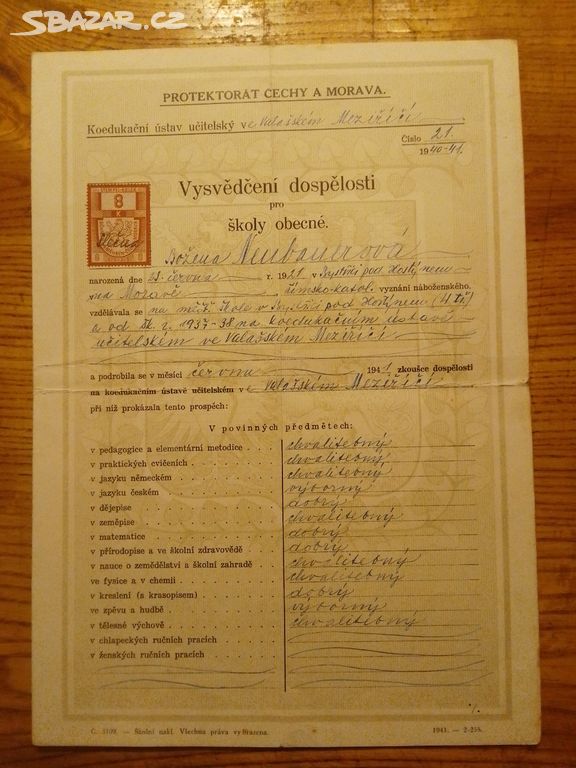 SBAZAR.CZ
PROTEKTORÁT ČECHY A MORAVA.
Koedukační ústav učitelský ve Valašském Meziříčí
Číslo 21.
1940-41.
8
K
Vysvědčení dospělosti
pro
školy obecné.
Božena Neubauerová
narozená dne 23. června r. 1921 v Bystřici pod Host.
na Moravě, římsko-katol. vyznání náboženského.
vzdělávala se na měšť. škole v Bystřici pod Hostýnem (4 tř)
a od šk. r. 1937-38 na koedukačním ústavě
učitelském ve Valašském Meziříčí
a podrobila se v měsíci června 1941 zkoušce dospělosti
na koedukačním ústavě učitelském ve Valašském Meziříčí
při níž prokázala tento prospěch:
V povinných předmětech:
v pedagogice a elementární metodice . . . chvalitebný
v praktických cvičeních . . . chvalitebný
v jazyku německém . . . chvalitebný
v jazyku českém . . . výborný
v dějepise . . . dobrý
v zeměpise . . . chvalitebný
v matematice . . . dobrý
v přírodopise a ve školní zdravovědě . . . dobrý
v nauce o zemědělství a školní zahradě chvalitebný
ve fysice a v chemii . . . chvalitebný
v kreslení (s krasopisem) . . . dobrý
ve zpěvu a hudbě . . . výborný
v tělesné výchově . . . chvalitebný
v chlapeckých ručních pracích . . .
v ženských ručních pracích . . .
Č. 3109. — Školní nakl. Všechna práva vyhrazena.
1941. — 2-258.